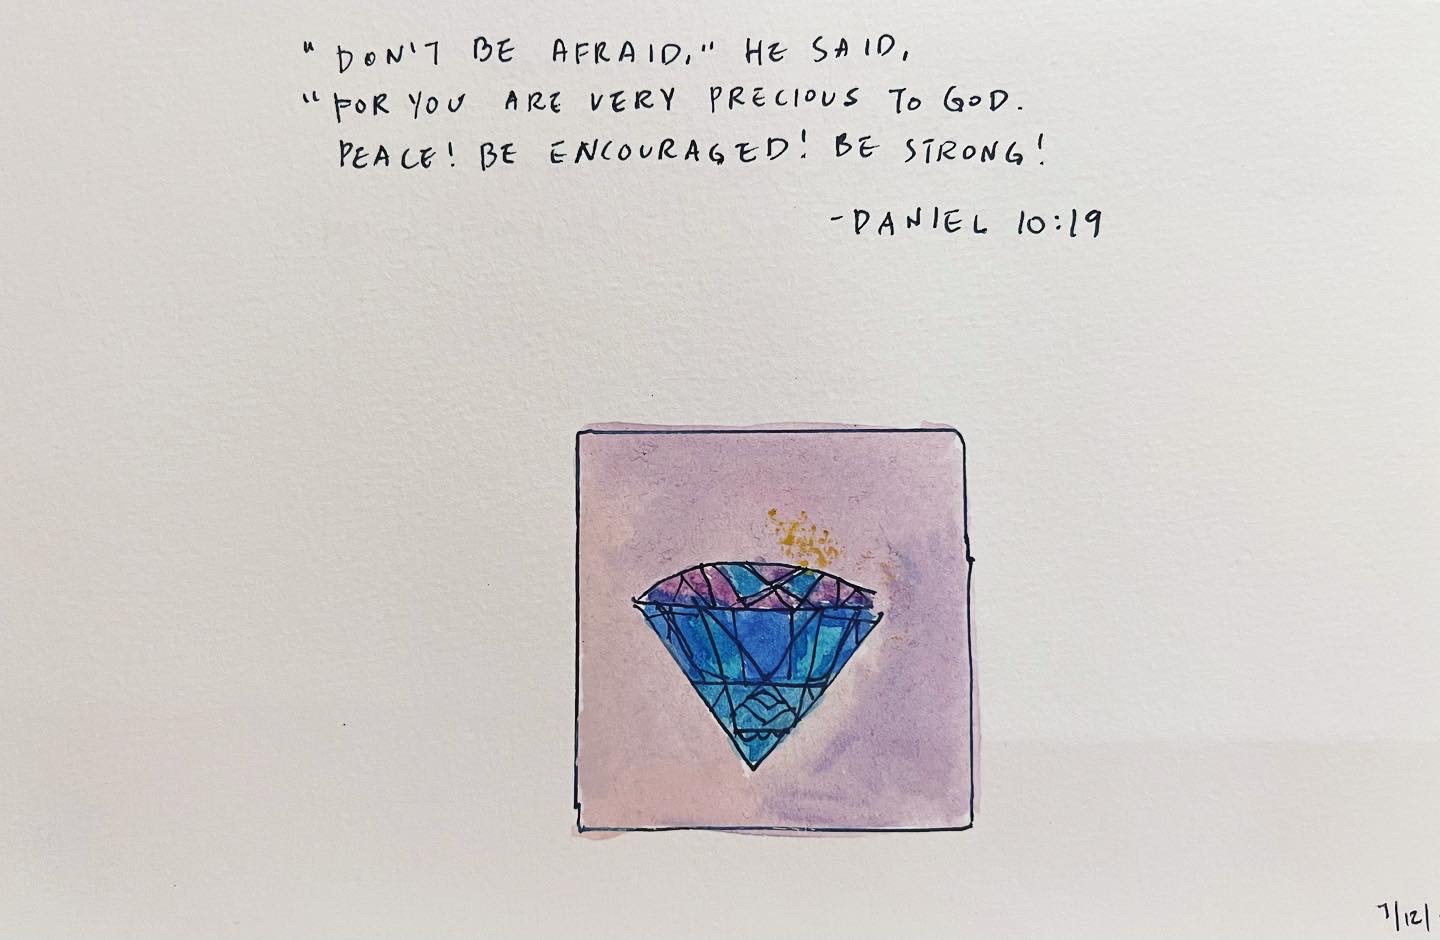 "DON'T BE AFRAID," HE SAID,
"FOR YOU ARE VERY PRECIOUS TO GOD.
PEACE! BE ENCOURAGED! BE STRONG!
-DANIEL 10:19
7/12/